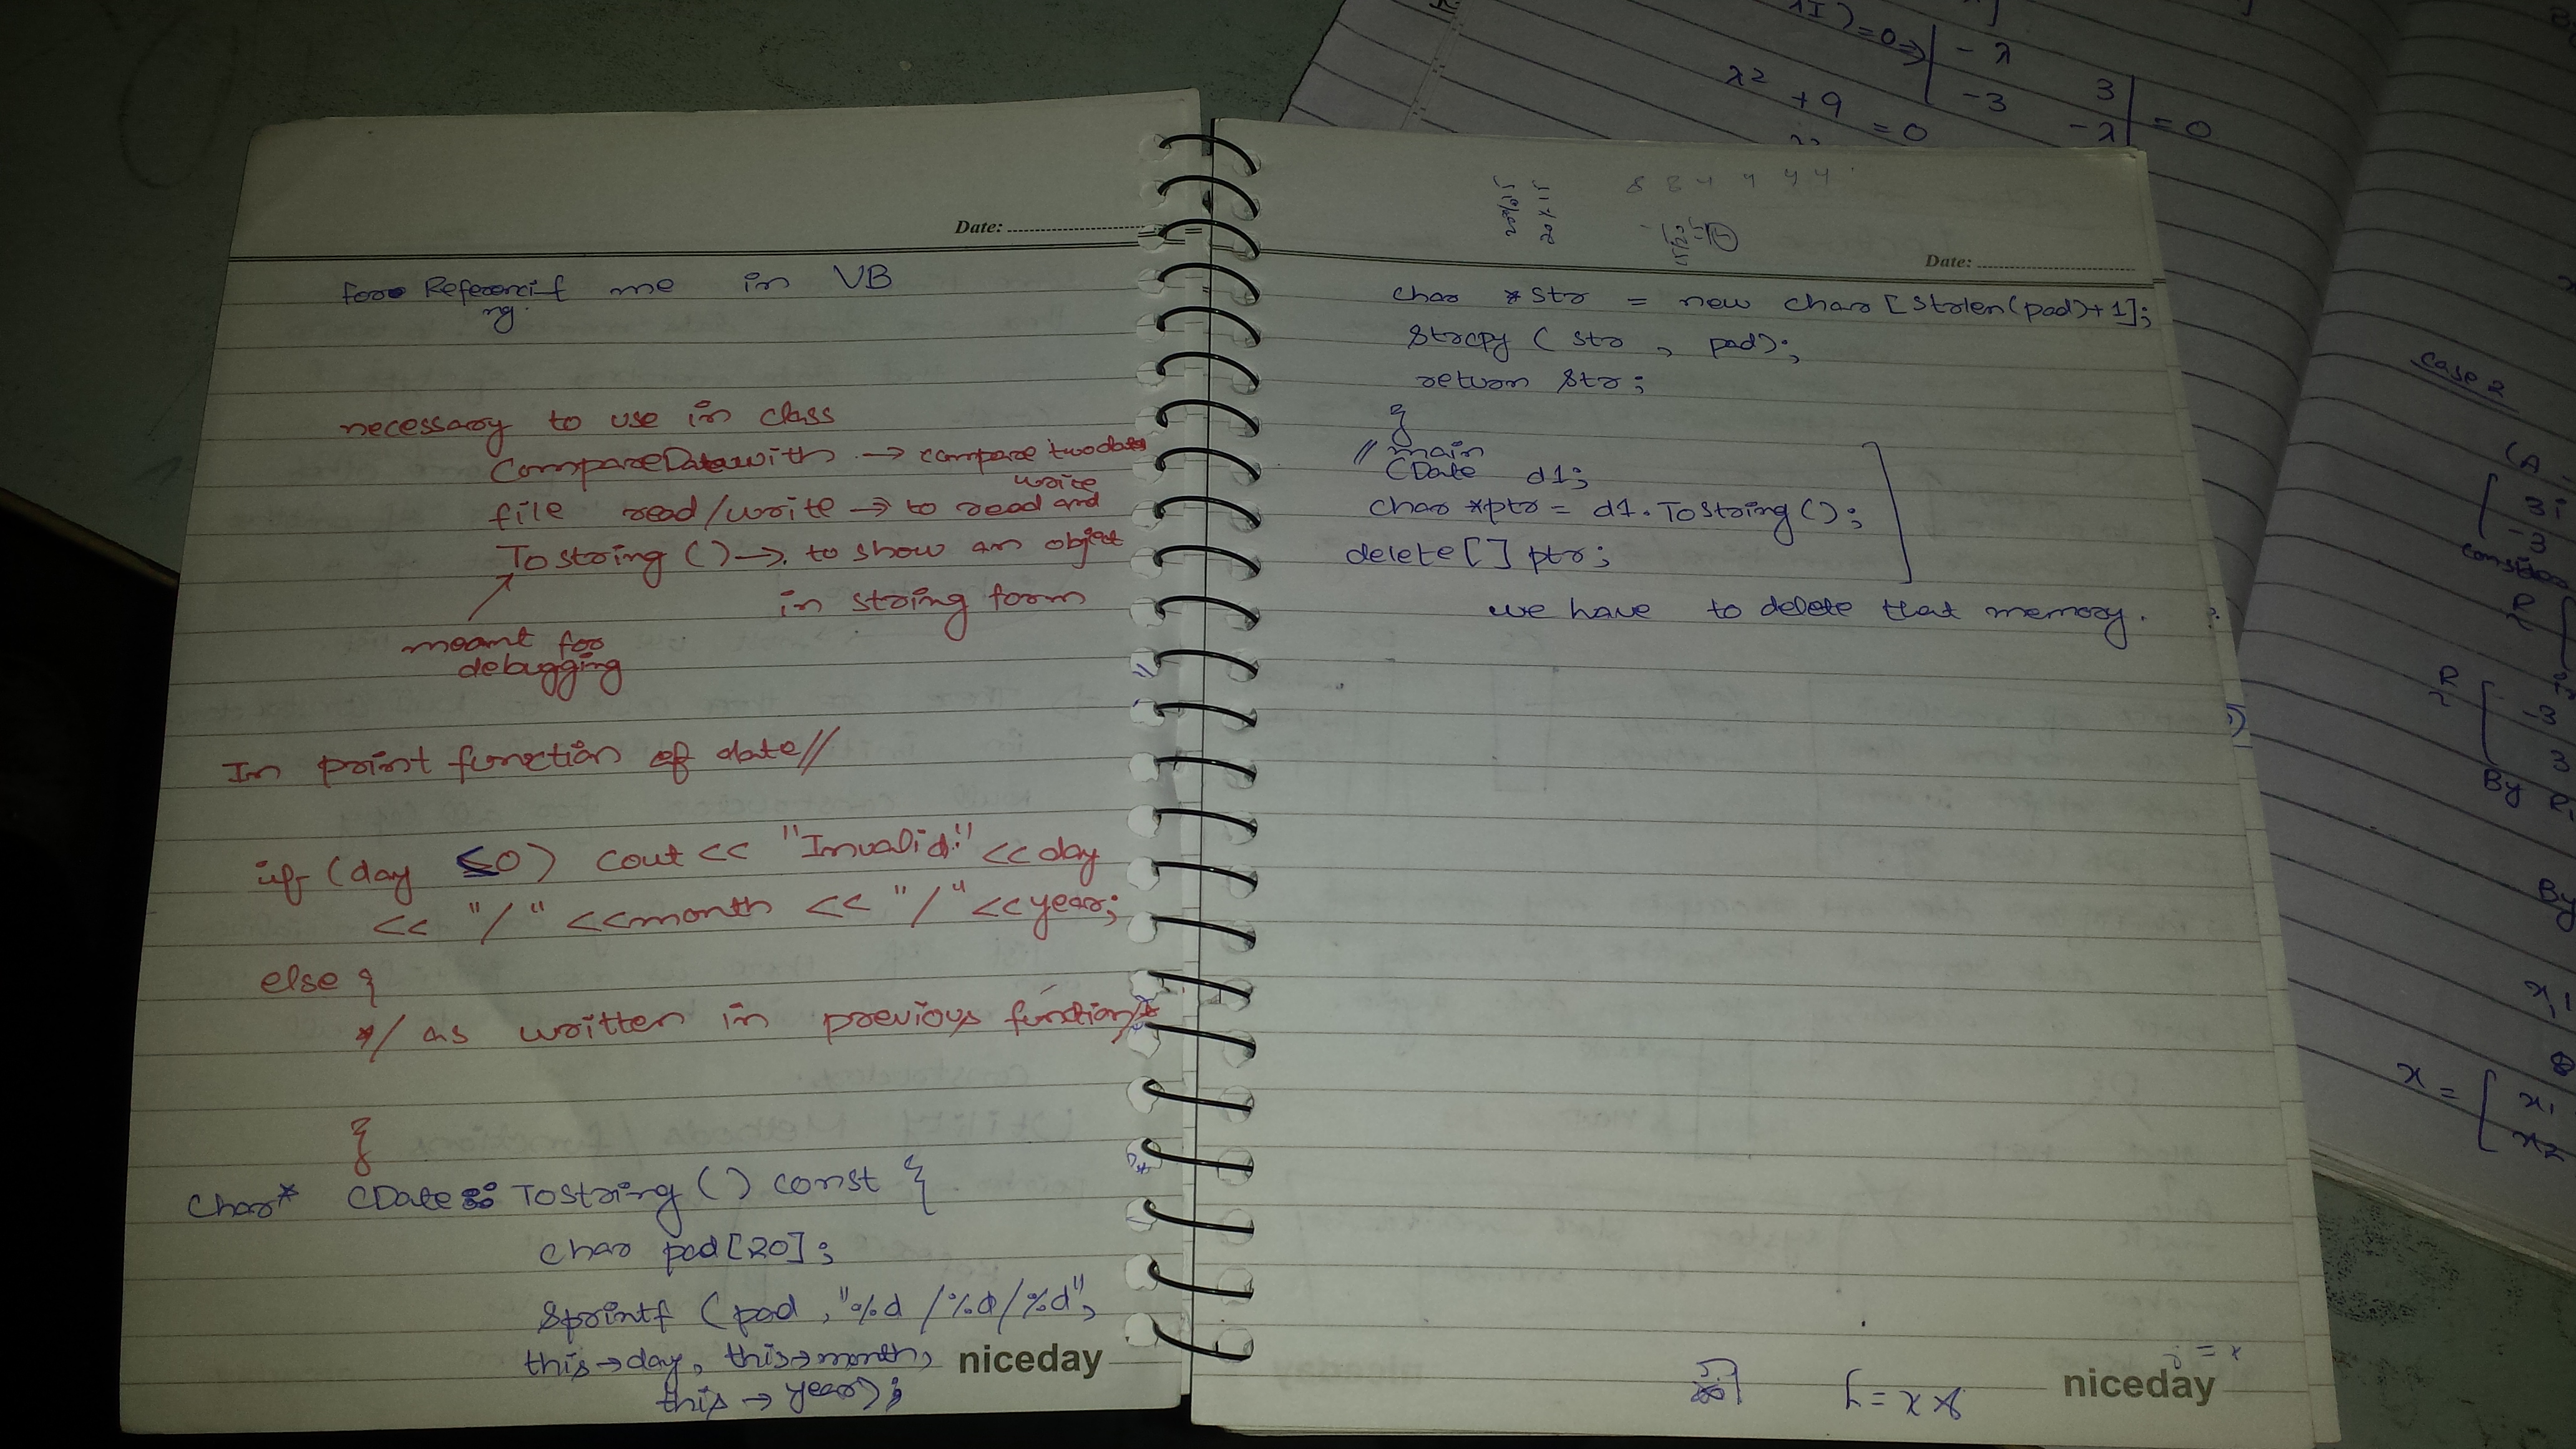 Date:
for Referencing me in VB
necessary to use in class
CompareDatewith → compare two dates
file read/write → to read and write
ToString () → to show an object
in string form
meant for
debugging
In print function of date//
if (day ≤0) cout << "Invalid:" << day
<< "/" << month << "/" << year;
else {
*/ as written in previous function/*
}
Char* CDate :: ToString () const {
char pad[20];
Sprintf (pad ,"%d /%d/%d",
this→day, this→month,
this → year);
niceday
Date:
char *str = new char [strlen(pad)+1];
Strcpy ( str , pad);
return str;
}
// main
CDate d1;
char *ptr = d1.ToString ();
delete[] ptr;
we have to delete that memory.
niceday
λ2 + 9 = 0
- λ 3
-3 - λ = 0
Case 2
3i
-3
-3
3
By
By
x1
x = [ x1
x2